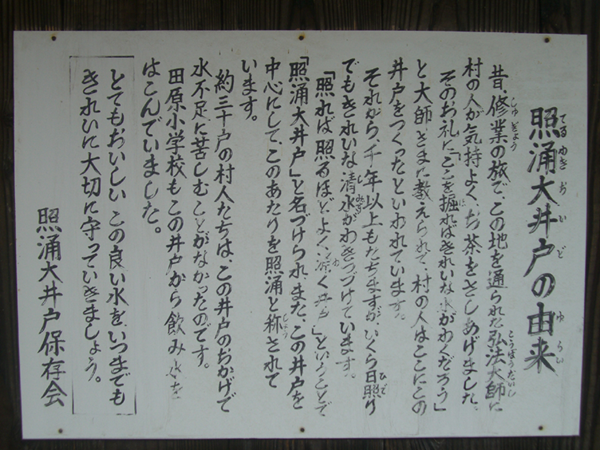 照涌大井戸の由来
てるゆきおおいど
ゆらい
昔、修業の旅で、この地を通られた弘法大師に
しゅぎょう
こうぼうだいし
村の人が気持よく、お茶をさしあげました。
そのお礼に「ここを掘ればきれいな水がわくだろう」
と大師さまに教えられて、村の人はここにこの
井戸をつくったといわれています。
それから、千年以上もたちますが、いくら日照り
ひで
でもきれいな清水がわきつづけています。
しみず
「照れば照るほどよく涌く井戸」ということで
「照涌大井戸」と名づけられ、また、この井戸を
中心にして、このあたりを照涌と称されて
しょう
います。
約三十戸の村人たちは、この井戸のおかげで
水不足に苦しむことがなかったのです。
田原小学校もこの井戸から飲み水を
はこんでいました。
とてもおいしいこの良い水を、いつまでも
きれいに大切に守っていきましょう。
照涌大井戸保存会